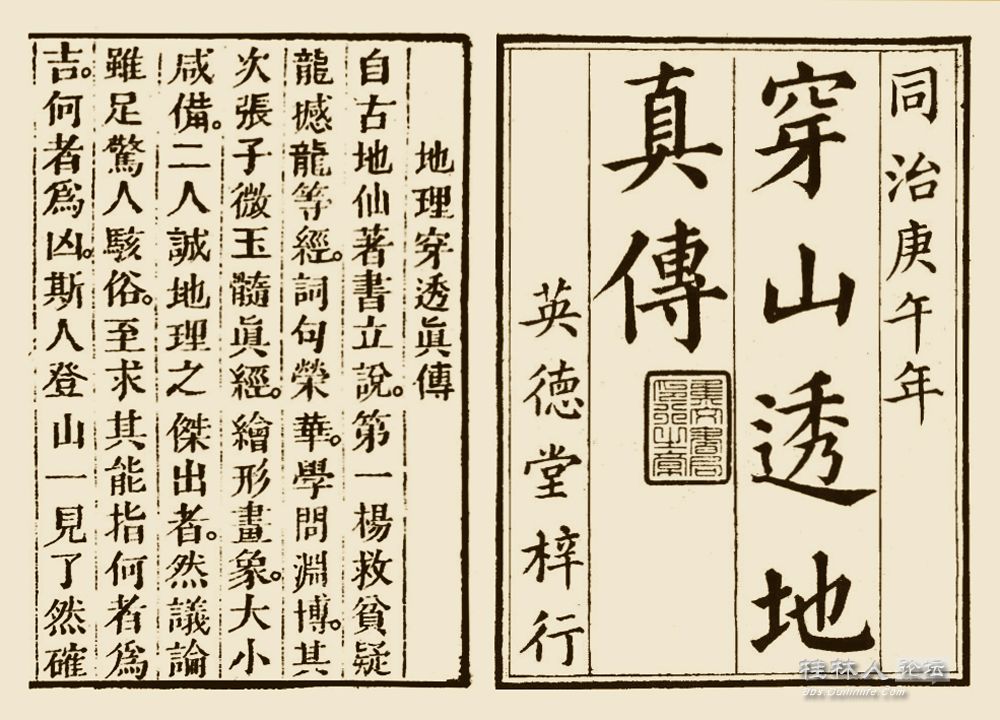 同治庚午年
穿山透地
真傳
英德堂梓行
地理穿透眞傳
自古地仙著書立說。第一楊救貧疑
龍撼龍等經。詞句榮華。學問淵博。其
次張子微玉髓眞經。繪形畫象。大小
咸備。二人誠地理之傑出者。然議論
雖足驚人駭俗。至求其能指何者爲
吉。何者爲凶。斯人登山一見了然確
桂林人 论坛
bbs.Guilinlife.Com